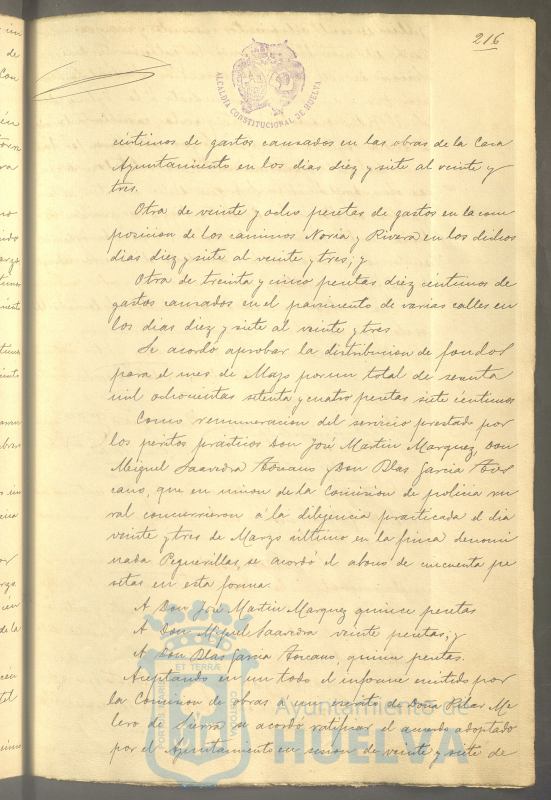 216
ALCALDIA CONSTITUCIONAL DE HUELVA
centimos de gastos causados en las obras de la Casa
Ayuntamiento en los dias diez y siete al veinte y
tres.
Otra de veinte y ocho pesetas de gastos en la com
posicion de los caminos Noria y Rivera en los dichos
dias diez y siete al veinte y tres; y
Otra de treinta y cinco pesetas diez centimos de
gastos causados en el pavimento de varias calles en
los dias diez y siete al veinte y tres
Se acordó aprobar la distribucion de fondos
para el mes de Mayo por un total de sesenta
mil ochocientas setenta y cuatro pesetas siete centimos
Como remuneracion del servicio prestado por
los peritos practicos Don José Martin Marquez, Don
Miguel Saavedra Toscano y Don Blas Garcia Tos
cano, que en union de la Comision de policia ru
ral concurrieron a la diligencia practicada el dia
veinte y tres de Marzo último en la finca denomi
nada Peguerillas, se acordó el abono de cincuenta pe
setas en esta forma.
A Don José Martin Marquez quince pesetas
A Don Miguel Saavedra veinte pesetas; y
A Don Blas Garcia Toscano, quince pesetas.
Aceptando en un todo el informe emitido por
la Comision de obras á un escrito de Doña Pilar Me
lero de Sierra se acordó ratificar el acuerdo adoptado
por el Ayuntamiento en sesion de veinte y siete de
Ayuntamiento de
HUELVA